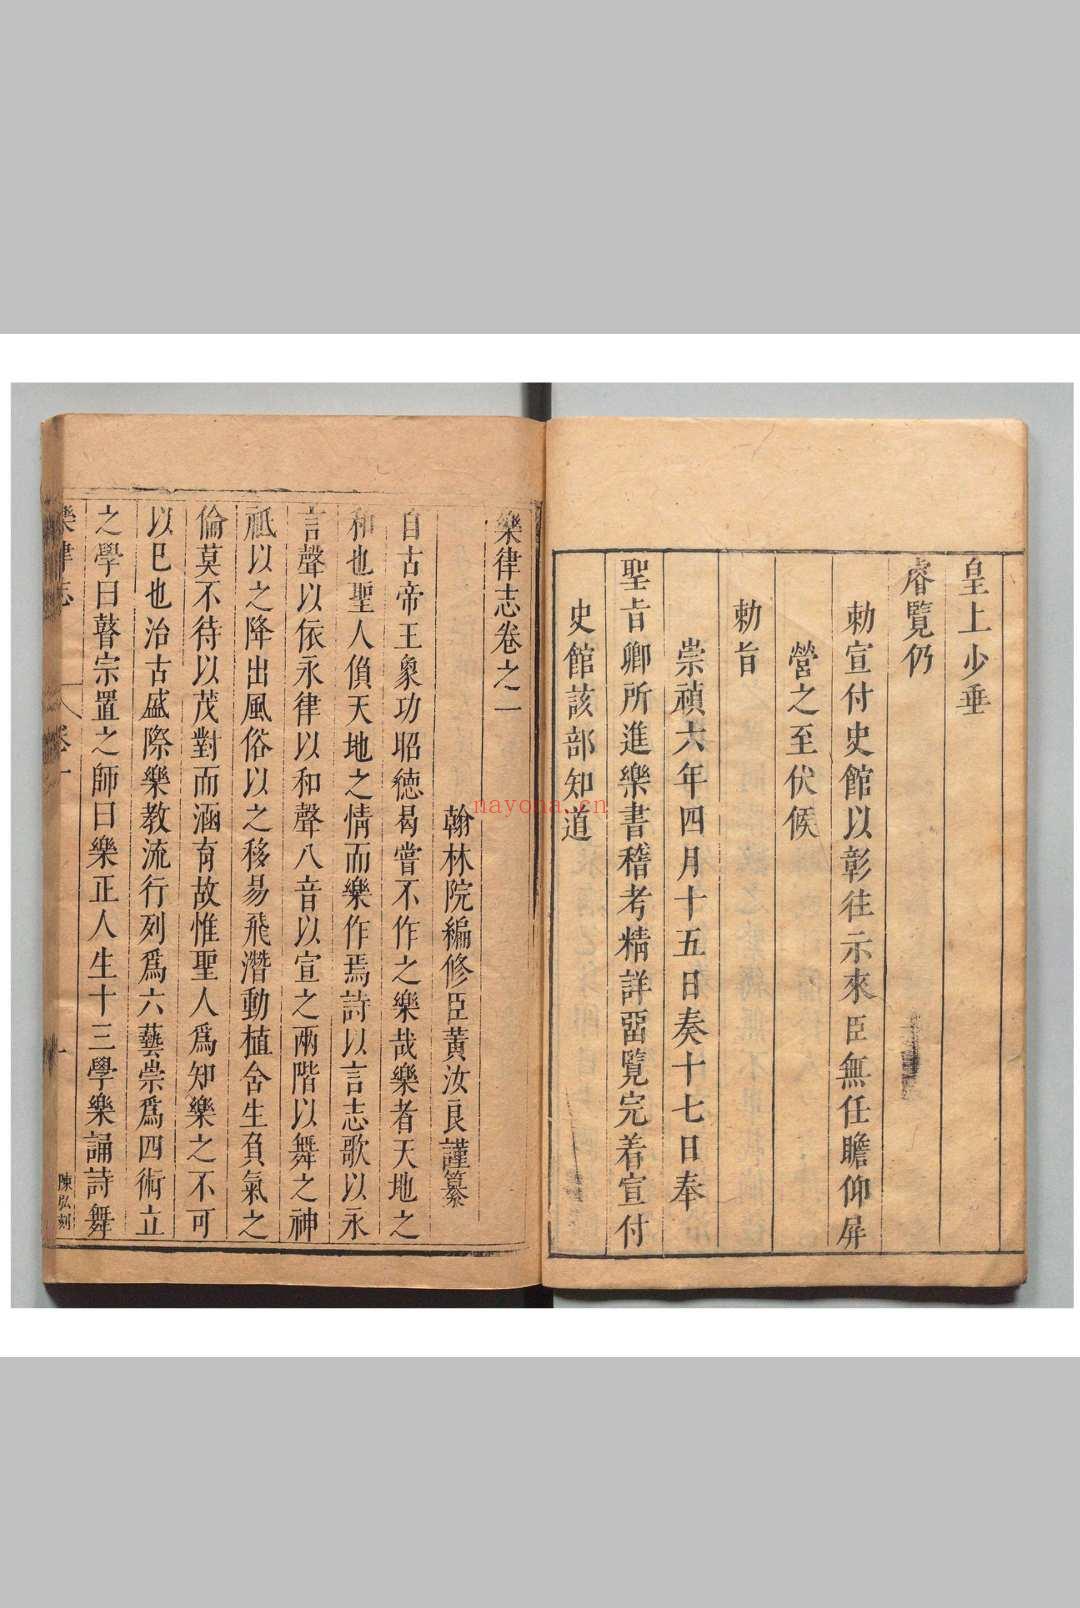 皇上少垂
睿覽仍
勅宣付史館以彰往示來臣無任瞻仰屏
營之至伏候
勅旨
崇禎六年四月十五日奏十七日奉
聖旨卿所進樂書稽考精詳畱覽完着宣付
史館該部知道
樂律志卷之一
翰林院編修臣黃汝良謹纂
自古帝王象功昭德曷嘗不作之樂哉樂者天地之
和也聖人負天地之情而樂作焉詩以言志歌以永
言聲以依永律以和聲八音以宣之兩階以舞之神
祇以之降出風俗以之移易飛潛動植含生負氣之
倫莫不待以茂對而涵育故惟聖人爲知樂之不可
以已也治古盛際樂教流行列爲六藝崇爲四術立
之學曰瞽宗置之師曰樂正人生十三學樂誦詩舞
樂律志
卷一
一
陳弘刻
nayona.cn